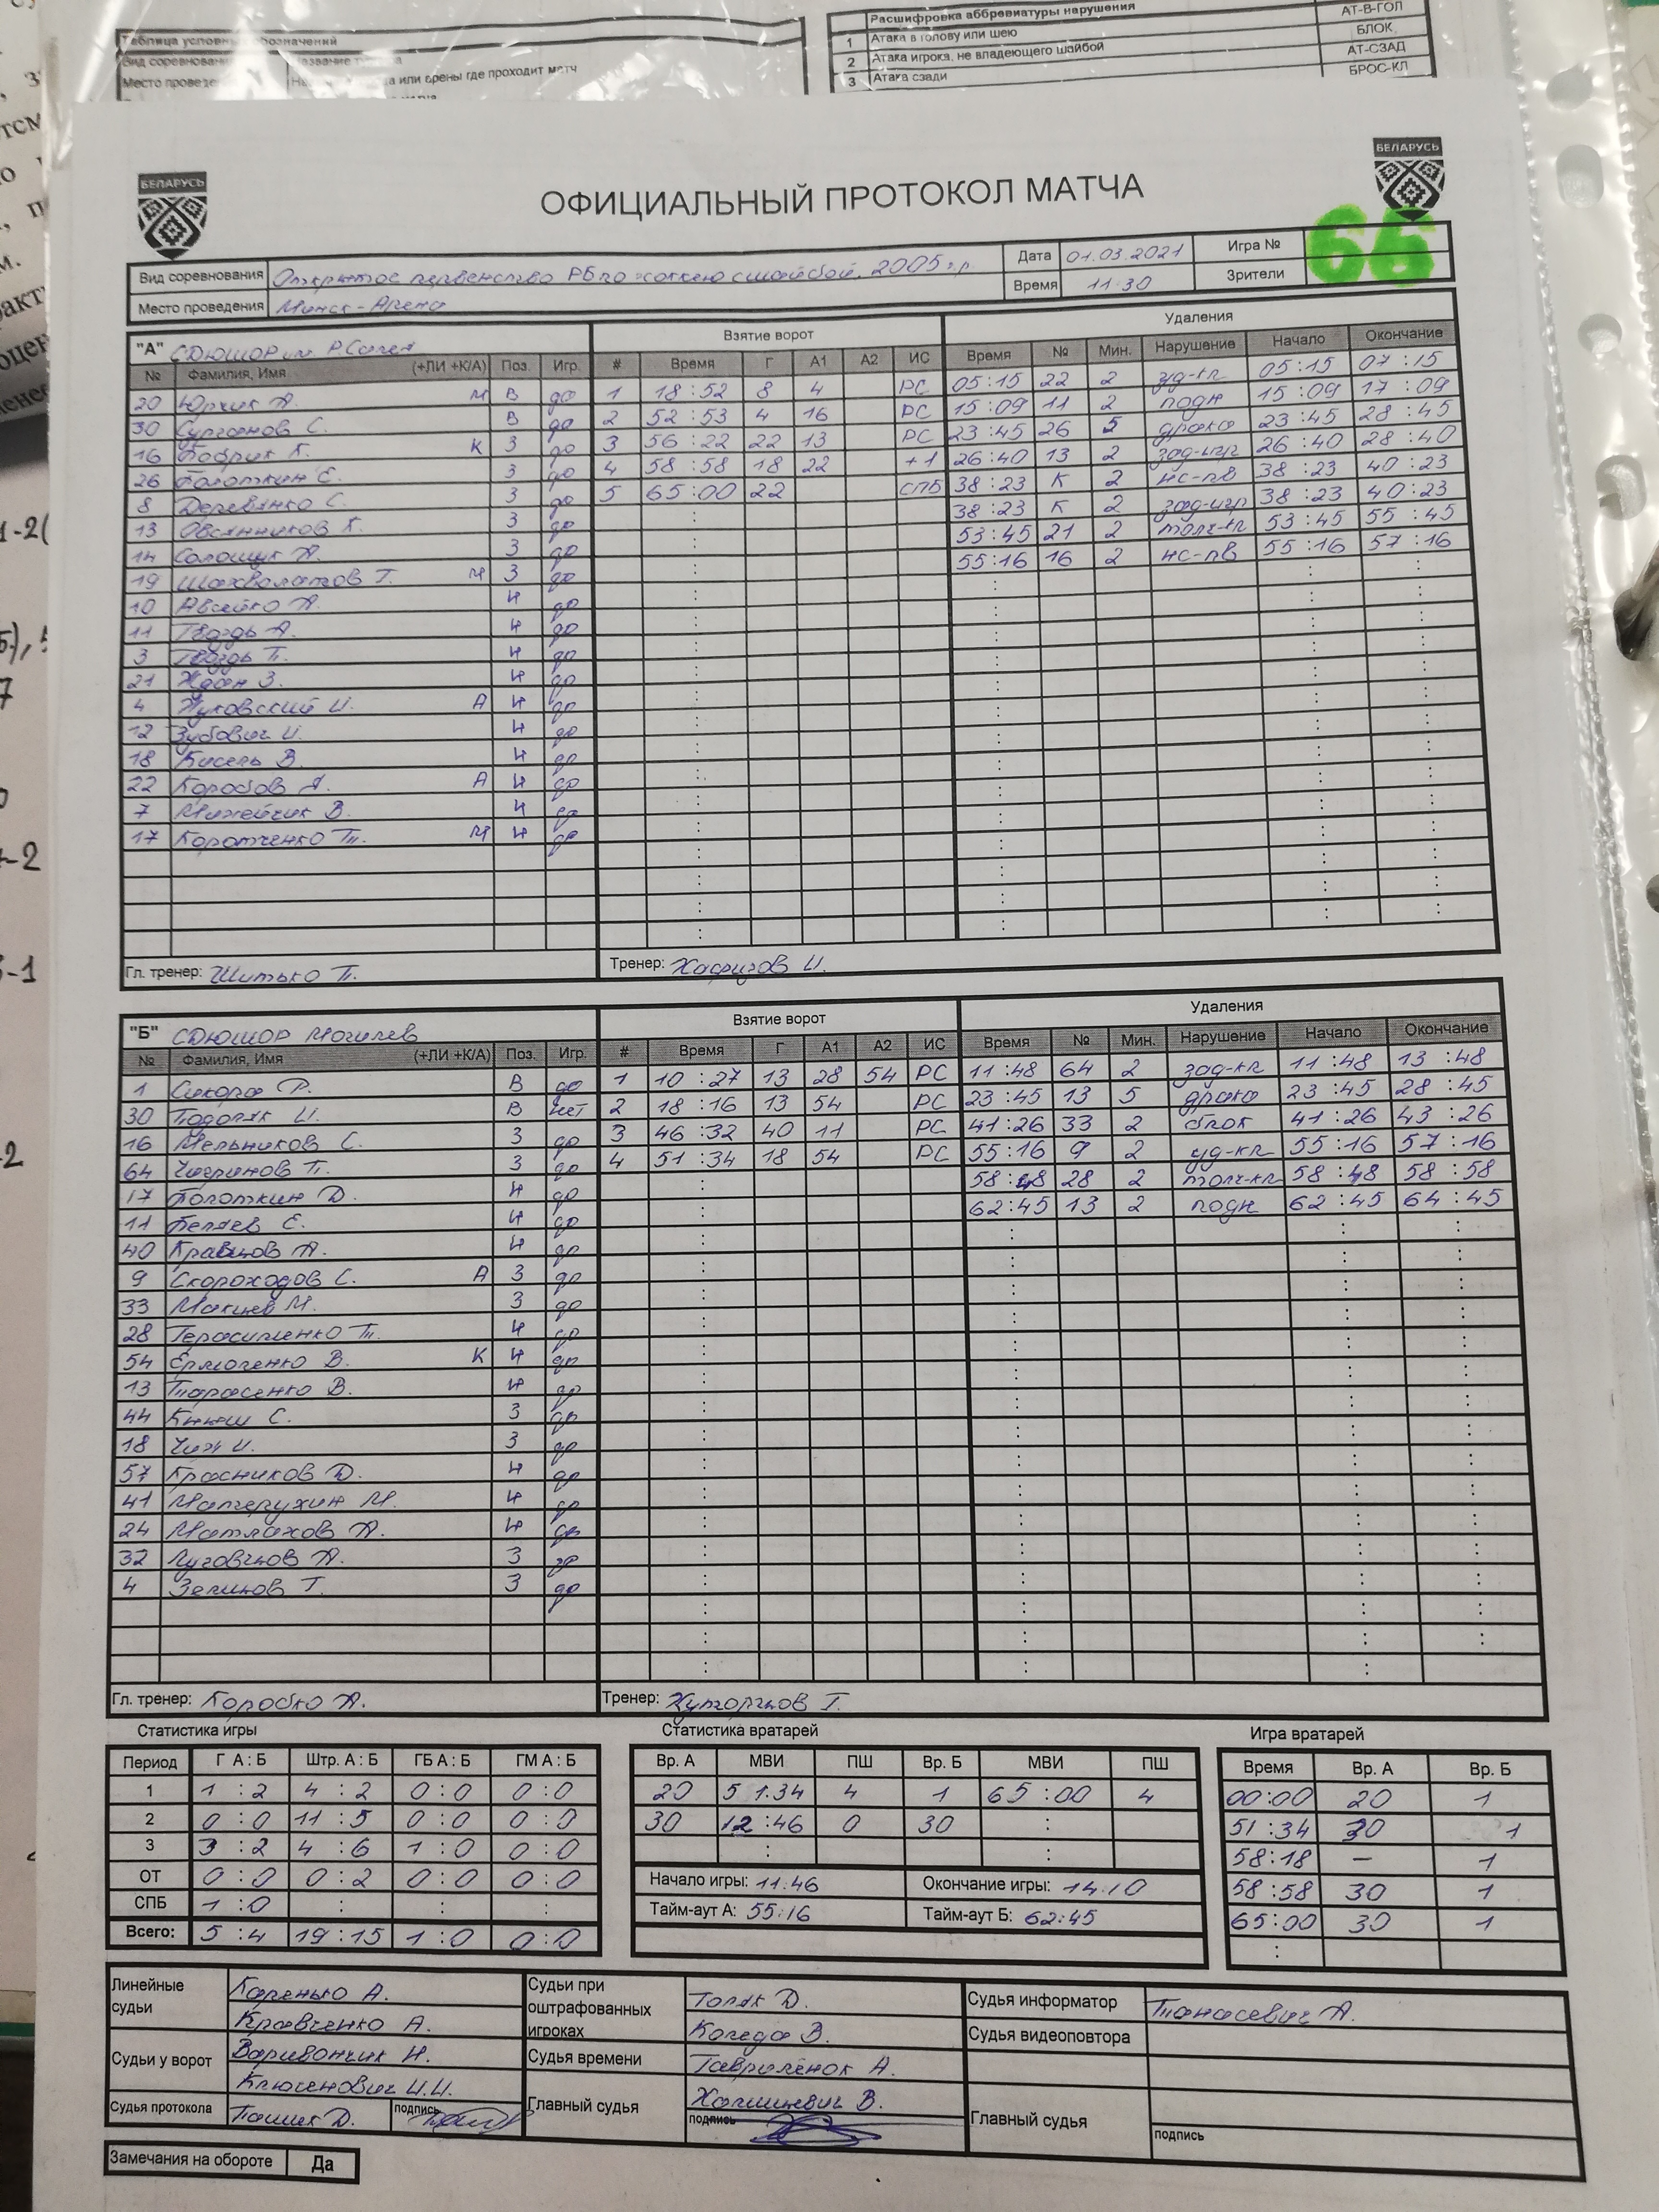 Таблица условных обозначений
Место проведе
а или арены где проходит матч
Расшифровка аббревиатуры нарушения
1 Атака в голову или шею АТ-В-ГОЛ
2 Атака игрока, не владеющего шайбой БЛОК
3 Атака сзади АТ-СЗАД
БРОС-КЛ
БЕЛАРУСЬ
БЕЛАРУСЬ
ОФИЦИАЛЬНЫЙ ПРОТОКОЛ МАТЧА
66
Вид соревнования Открытое первенство РБ по хоккею с шайбой, 2005 г.р. Дата 01.03.2021 Игра №
Место проведения Минск-Арена Время 11:30 Зрители
"А" СДЮШОР им. Р.Салея Взятие ворот Удаления
№ Фамилия, Имя (+ЛИ +К/А) Поз. Игр. # Время Г А1 А2 ИС Время № Мин. Нарушение Начало Окончание
20 Юрчик А. М В да 1 18:52 8 4 РС 05:15 22 2 уд-кл 05:15 07:15
30 Сурганов С. В да 2 52:53 4 16 РС 15:09 11 2 подн 15:09 17:09
16 Бобрик К. К З да 3 56:22 22 13 РС 23:45 26 5 драка 23:45 28:45
26 Болоткин Е. З да 4 58:58 18 22 +1 26:40 13 2 зад-игр 26:40 28:40
8 Деревянко С. З да 5 65:00 22 СПБ 38:23 К 2 нс-пв 38:23 40:23
13 Овсянников К. З да 38:23 К 2 зад-игр 38:23 40:23
14 Солощук А. З да 53:45 21 2 толч-кл 53:45 55:45
19 Шахвалатов Т. М З да 55:16 16 2 нс-пв 55:16 57:16
10 Авсейко А. Н да
11 Гвоздь А. Н да
3 Гвоздь П. Н да
21 Ждан З. Н да
4 Жуковский И. А Н да
12 Зубович И. Н да
18 Кисель В. Н да
22 Коробов А. А Н да
7 Михейчик В. Н да
17 Коротченко П. М Н да
Гл. тренер: Шитько П. Тренер: Хафизов И.
"Б" СДЮШОР Могилев Взятие ворот Удаления
№ Фамилия, Имя (+ЛИ +К/А) Поз. Игр. # Время Г А1 А2 ИС Время № Мин. Нарушение Начало Окончание
1 Сикора Р. В да 1 10:27 13 28 54 РС 11:48 64 2 зад-кл 11:48 13:48
30 Подоляк И. В нет 2 18:16 13 54 РС 23:45 13 5 драка 23:45 28:45
16 Мельников С. З да 3 46:32 40 11 РС 41:26 33 2 блок 41:26 43:26
64 Чигринов П. З да 4 51:34 18 54 РС 55:16 9 2 уд-кл 55:16 57:16
17 Болоткин Д. Н да 58:48 28 2 толч-кл 58:48 58:58
11 Беляев Е. Н да 62:45 13 2 подн 62:45 64:45
40 Кравцов А. Н да
9 Скороходов С. А З да
33 Макиев М. З да
28 Герасименко П. Н да
54 Ермоленко В. К Н да
13 Тарасенко В. Н да
44 Кныш С. З да
18 Чиж И. З да
57 Красников Д. Н да
41 Матерухин М. Н да
24 Матлахов А. Н да
32 Луговцов А. З да
4 Зеликов Т. З да
Гл. тренер: Коробко А. Тренер: Хуторцков Г.
Статистика игры Статистика вратарей Игра вратарей
Период Г А : Б Штр. А : Б ГБ А : Б ГМ А : Б Вр. А МВИ ПШ Вр. Б МВИ ПШ Время Вр. А Вр. Б
1 1:2 4:2 0:0 0:0 20 51:34 4 1 65:00 4 00:00 20 1
2 0:0 11:5 0:0 0:0 30 12:46 0 30 : 51:34 30 1
3 3:2 4:6 1:0 0:0 58:18 — 1
ОТ 0:0 0:2 0:0 0:0 Начало игры: 11:46 Окончание игры: 14:10 58:58 30 1
СПБ 1:0 : : : Тайм-аут А: 55:16 Тайм-аут Б: 62:45 65:00 30 1
Всего: 5:4 19:15 1:0 0:0
Линейные судьи Каренько А. Судьи при оштрафованных игроках Голяк Д. Судья информатор Танасевич А.
Кравченко А. Коледа В. Судья видеоповтора
Судьи у ворот Варивончик Н. Судья времени Гавриленок А.
Клюгенович И.И. Главный судья Халишневич В. Главный судья
Судья протокола Пашик Д. подпись подпись подпись
Замечания на обороте Да